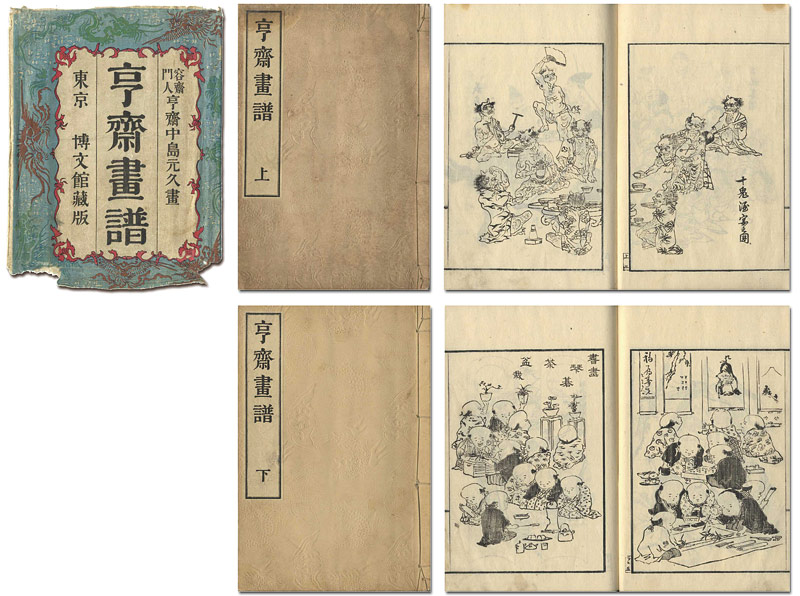 容齋
門人
亨齋中島元久畫
亨齋畫譜
東京 博文館藏版
亨齋畫譜
上
十鬼酒宴之圖
亨齋畫譜
下
書畫
琴碁
茶
盆栽